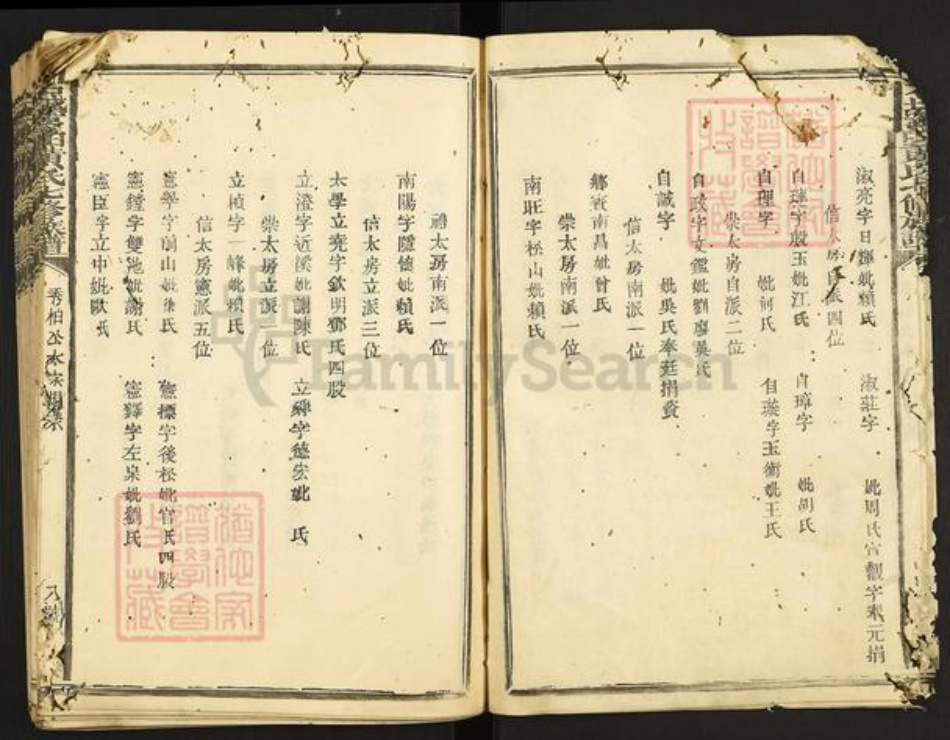 淑亮字日輝妣賴氏 淑莊字 妣周氏官觀字來元捐
信太房自派四位
自璉字殷玉妣江氏 自璋字 妣胡氏
自理字 妣何氏 自璇字玉衡妣王氏
崇太房自派二位
自政字文鑑妣劉廖吳氏
自誠字 妣吳氏奉廷捐資
信太房南派一位
鄉賓南昌妣曾氏
崇太房南派一位
南旺字松山妣賴氏
禮太房南派一位
南陽字隱德妣賴氏
信太房立派三位
太學立堯字欽明鄧氏四股
立澄字近溪妣謝陳氏 立 字德宏妣 氏
崇太房立派一位
立楨字一峰妣賴氏
信太房憲派五位
憲學字前山妣徐氏 憲標字後松妣官氏四股
憲鏜字雙池妣謝氏 憲鐸字左泉妣劉氏
憲臣字立中妣歐氏
黃氏七修族譜
秀柏公
八
猶他家譜學會收藏
猶他家譜學會收藏
FamilySearch